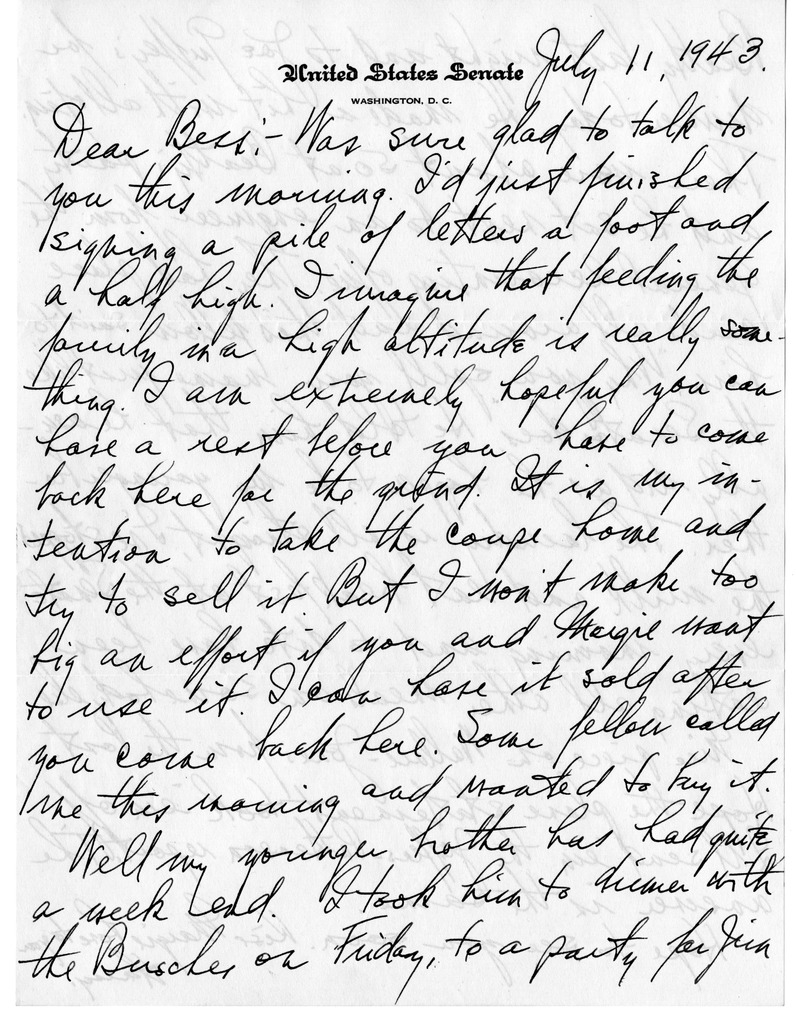 July 11, 1943.
United States Senate
WASHINGTON, D. C.
Dear Bess:- Was sure glad to talk to
you this morning. I'd just finished
signing a pile of letters a foot and
a half high. I imagine that feeding the
family in a high altitude is really some-
thing. I am extremely hopeful you can
have a rest before you have to come
back here for the grind. It is my in-
tention to take the coupe home and
try to sell it. But I won't make too
big an effort if you and Margie want
to use it. I can have it sold after
you come back here. Some fellow called
me this morning and wanted to buy it.
Well my younger brother has had quite
a week end. I took him to dinner with
the Busches on Friday, to a party for Jim